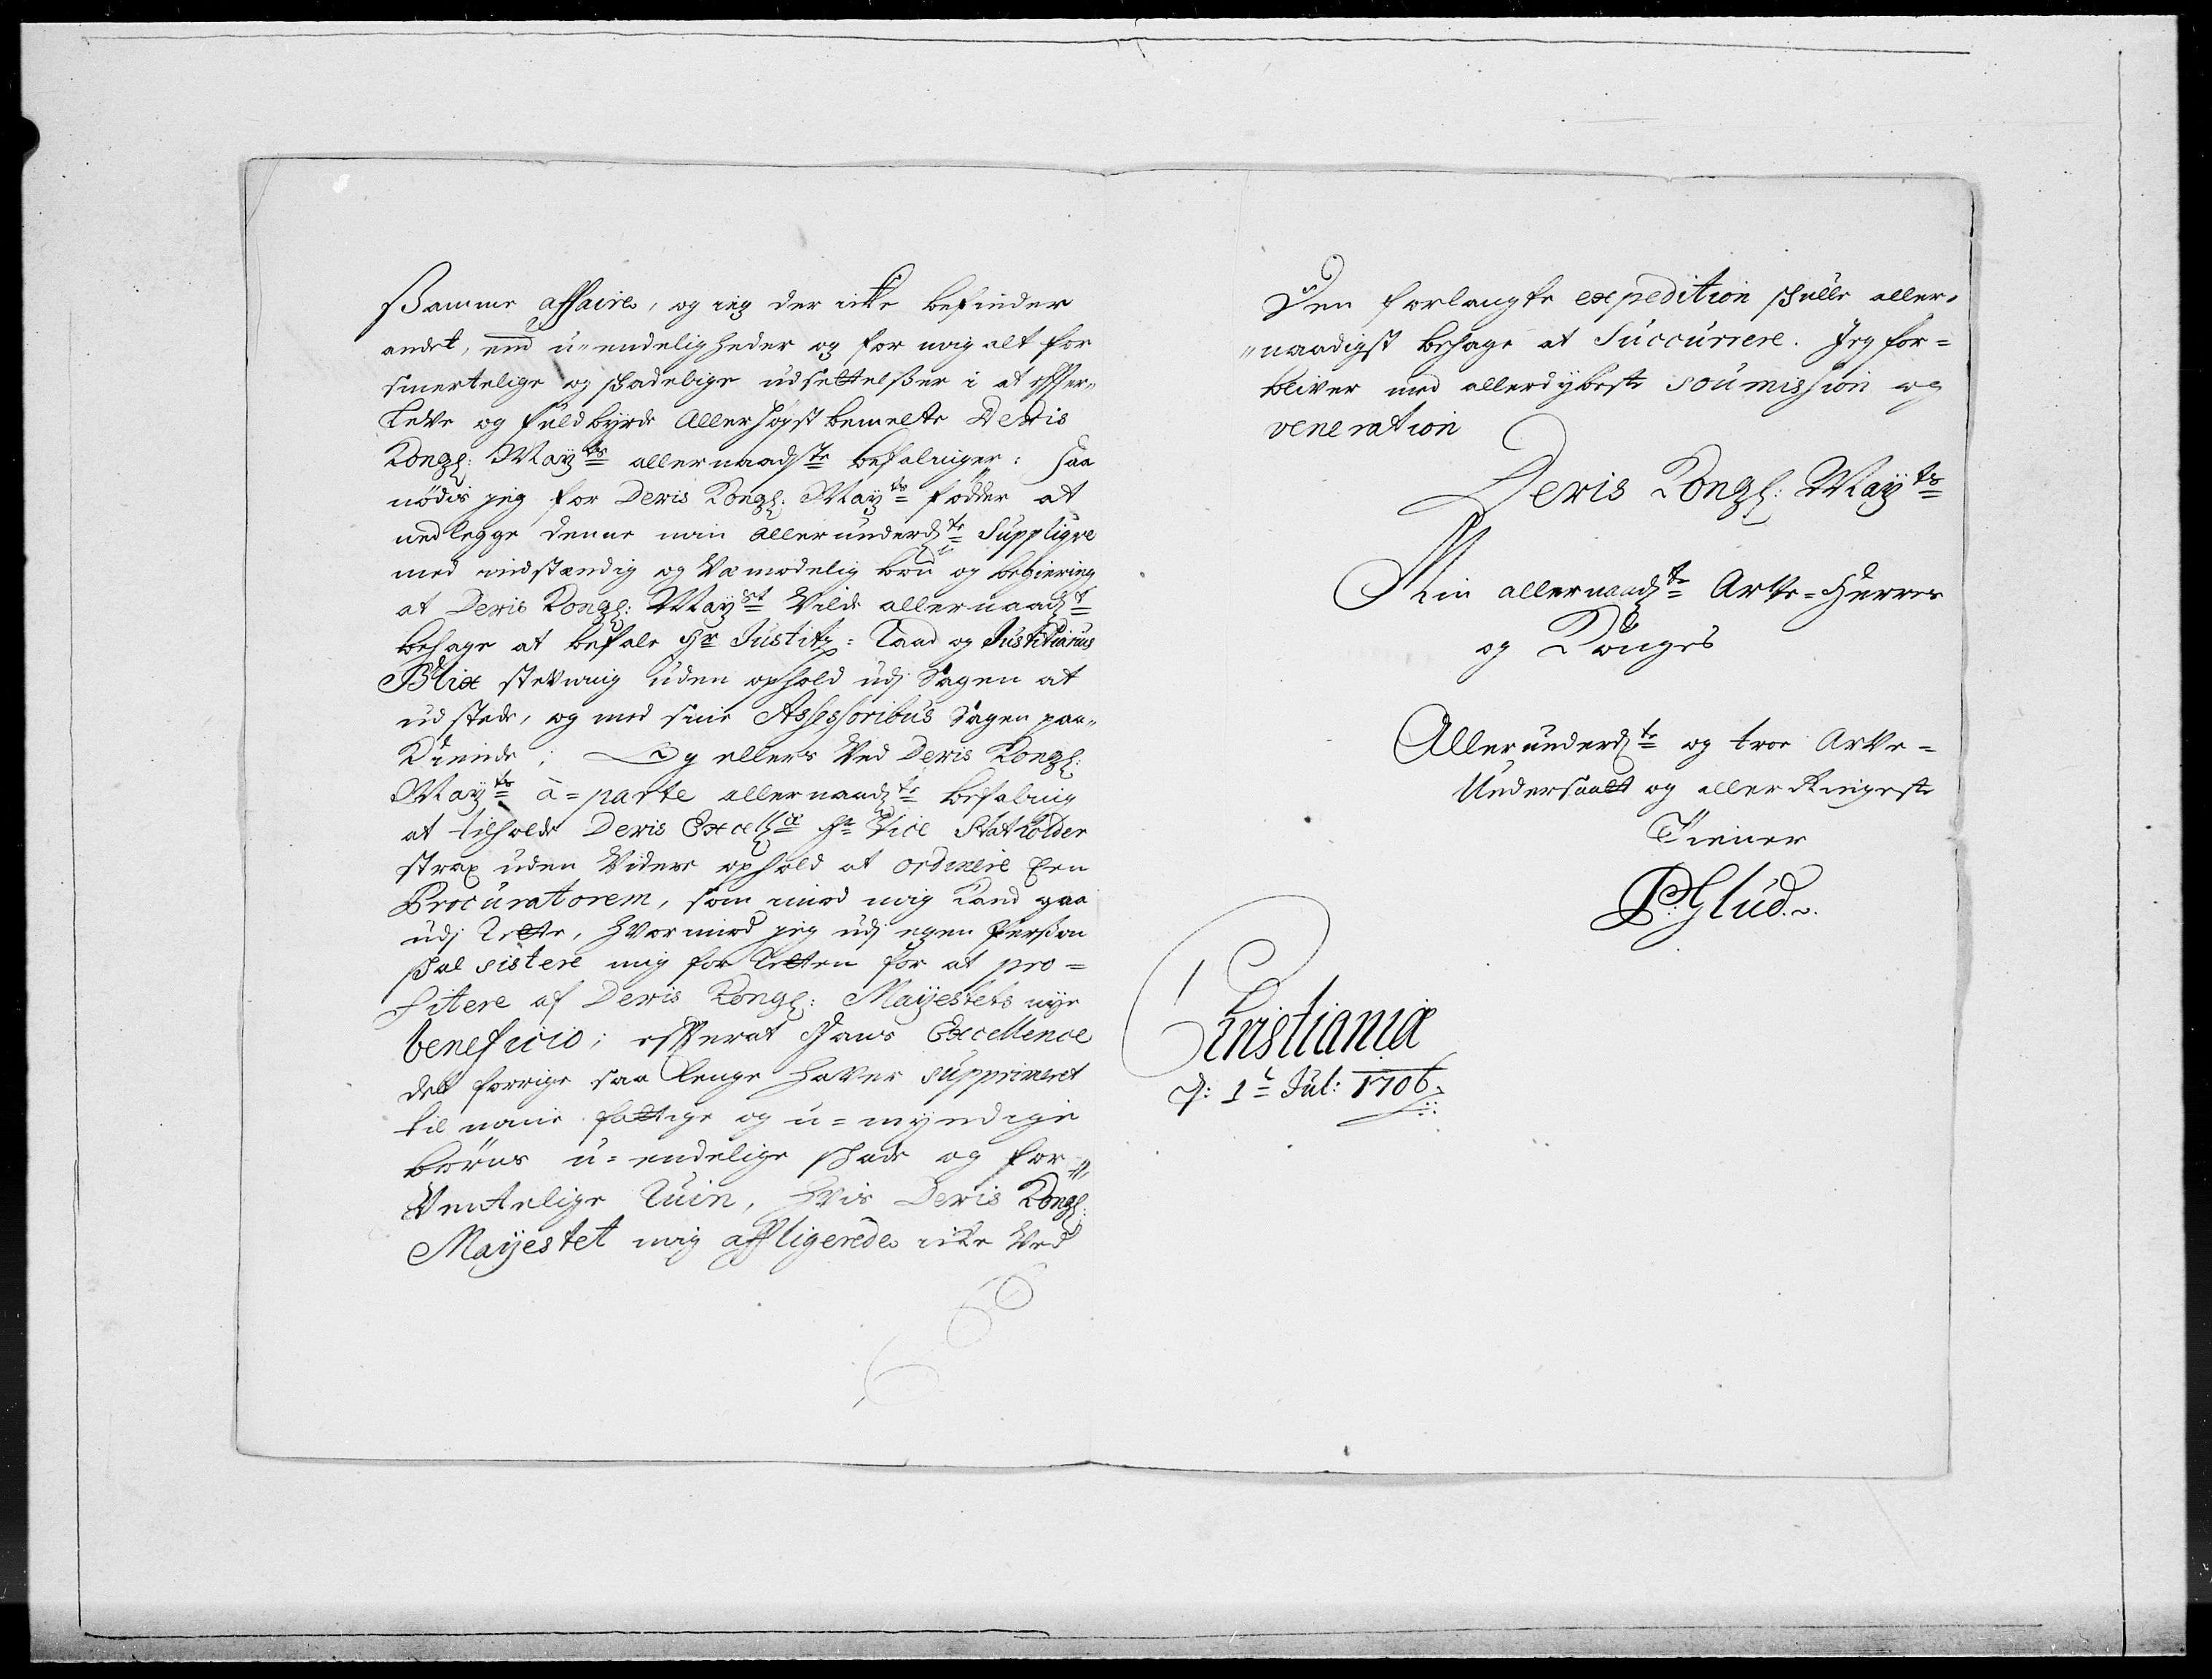 sßamme affaire, og ieg der icke befinder
andet, end u-endeligheder og for mig alt for
smertelige og skadelige udsettelßer i at effter-
leve og fuldbyrde Allerhögstbemelte Deris
Kongl: Mayts allernaadste befalninger: saa
nödis jeg for Deris Kongl: Mayts födder at
nedlegge denne min allerunderdste Supplique
med indstændig og Væmodelig bön og begiering
at Deris Kongl: Mayst Vilde allernaadst
behage at befale Hr Justitz-Raad og Justitiarius
Blix stevning uden ophold udj Sagen at
udstede, og med sine Assessoribus Sagen paa-
Kiende; Og ellers Ved Deris Kongl:
Mayts à-parte allernaadste befalning
at tilholde Deris Excellce Hr Vice Statholder
strax uden Videre ophold at ordinere Een
Procuratorem, som imod mig Kand gaa
udj Rette, hvorimod jeg udj egen Persson
skal sistere mig for Retten for at pro-
fitere af Deris Kongl: Mayestets nye
beneficio; effterat Hans Excellence
det forrige saa lenge haver supprimeret
til mine fattige og u-myndige
börns u-endelige skade og for-
Ventelige Ruin, hvis Deris Kongl:
Mayestet mig affligerede icke Ved
Den forlangte expedition skulle aller-
naadigst behage at Succurrere. Jeg for-
bliver med allerdybeste soumission og
veneration
Deris Kongl: Mayts
Min allernaadste Arve-Herres
og Konges
Allerunderdste og troe Arve-
Undersaatt og allerringeste
Tiener
P: Glud.
Christianiæ
d: 1t Jul: 1706